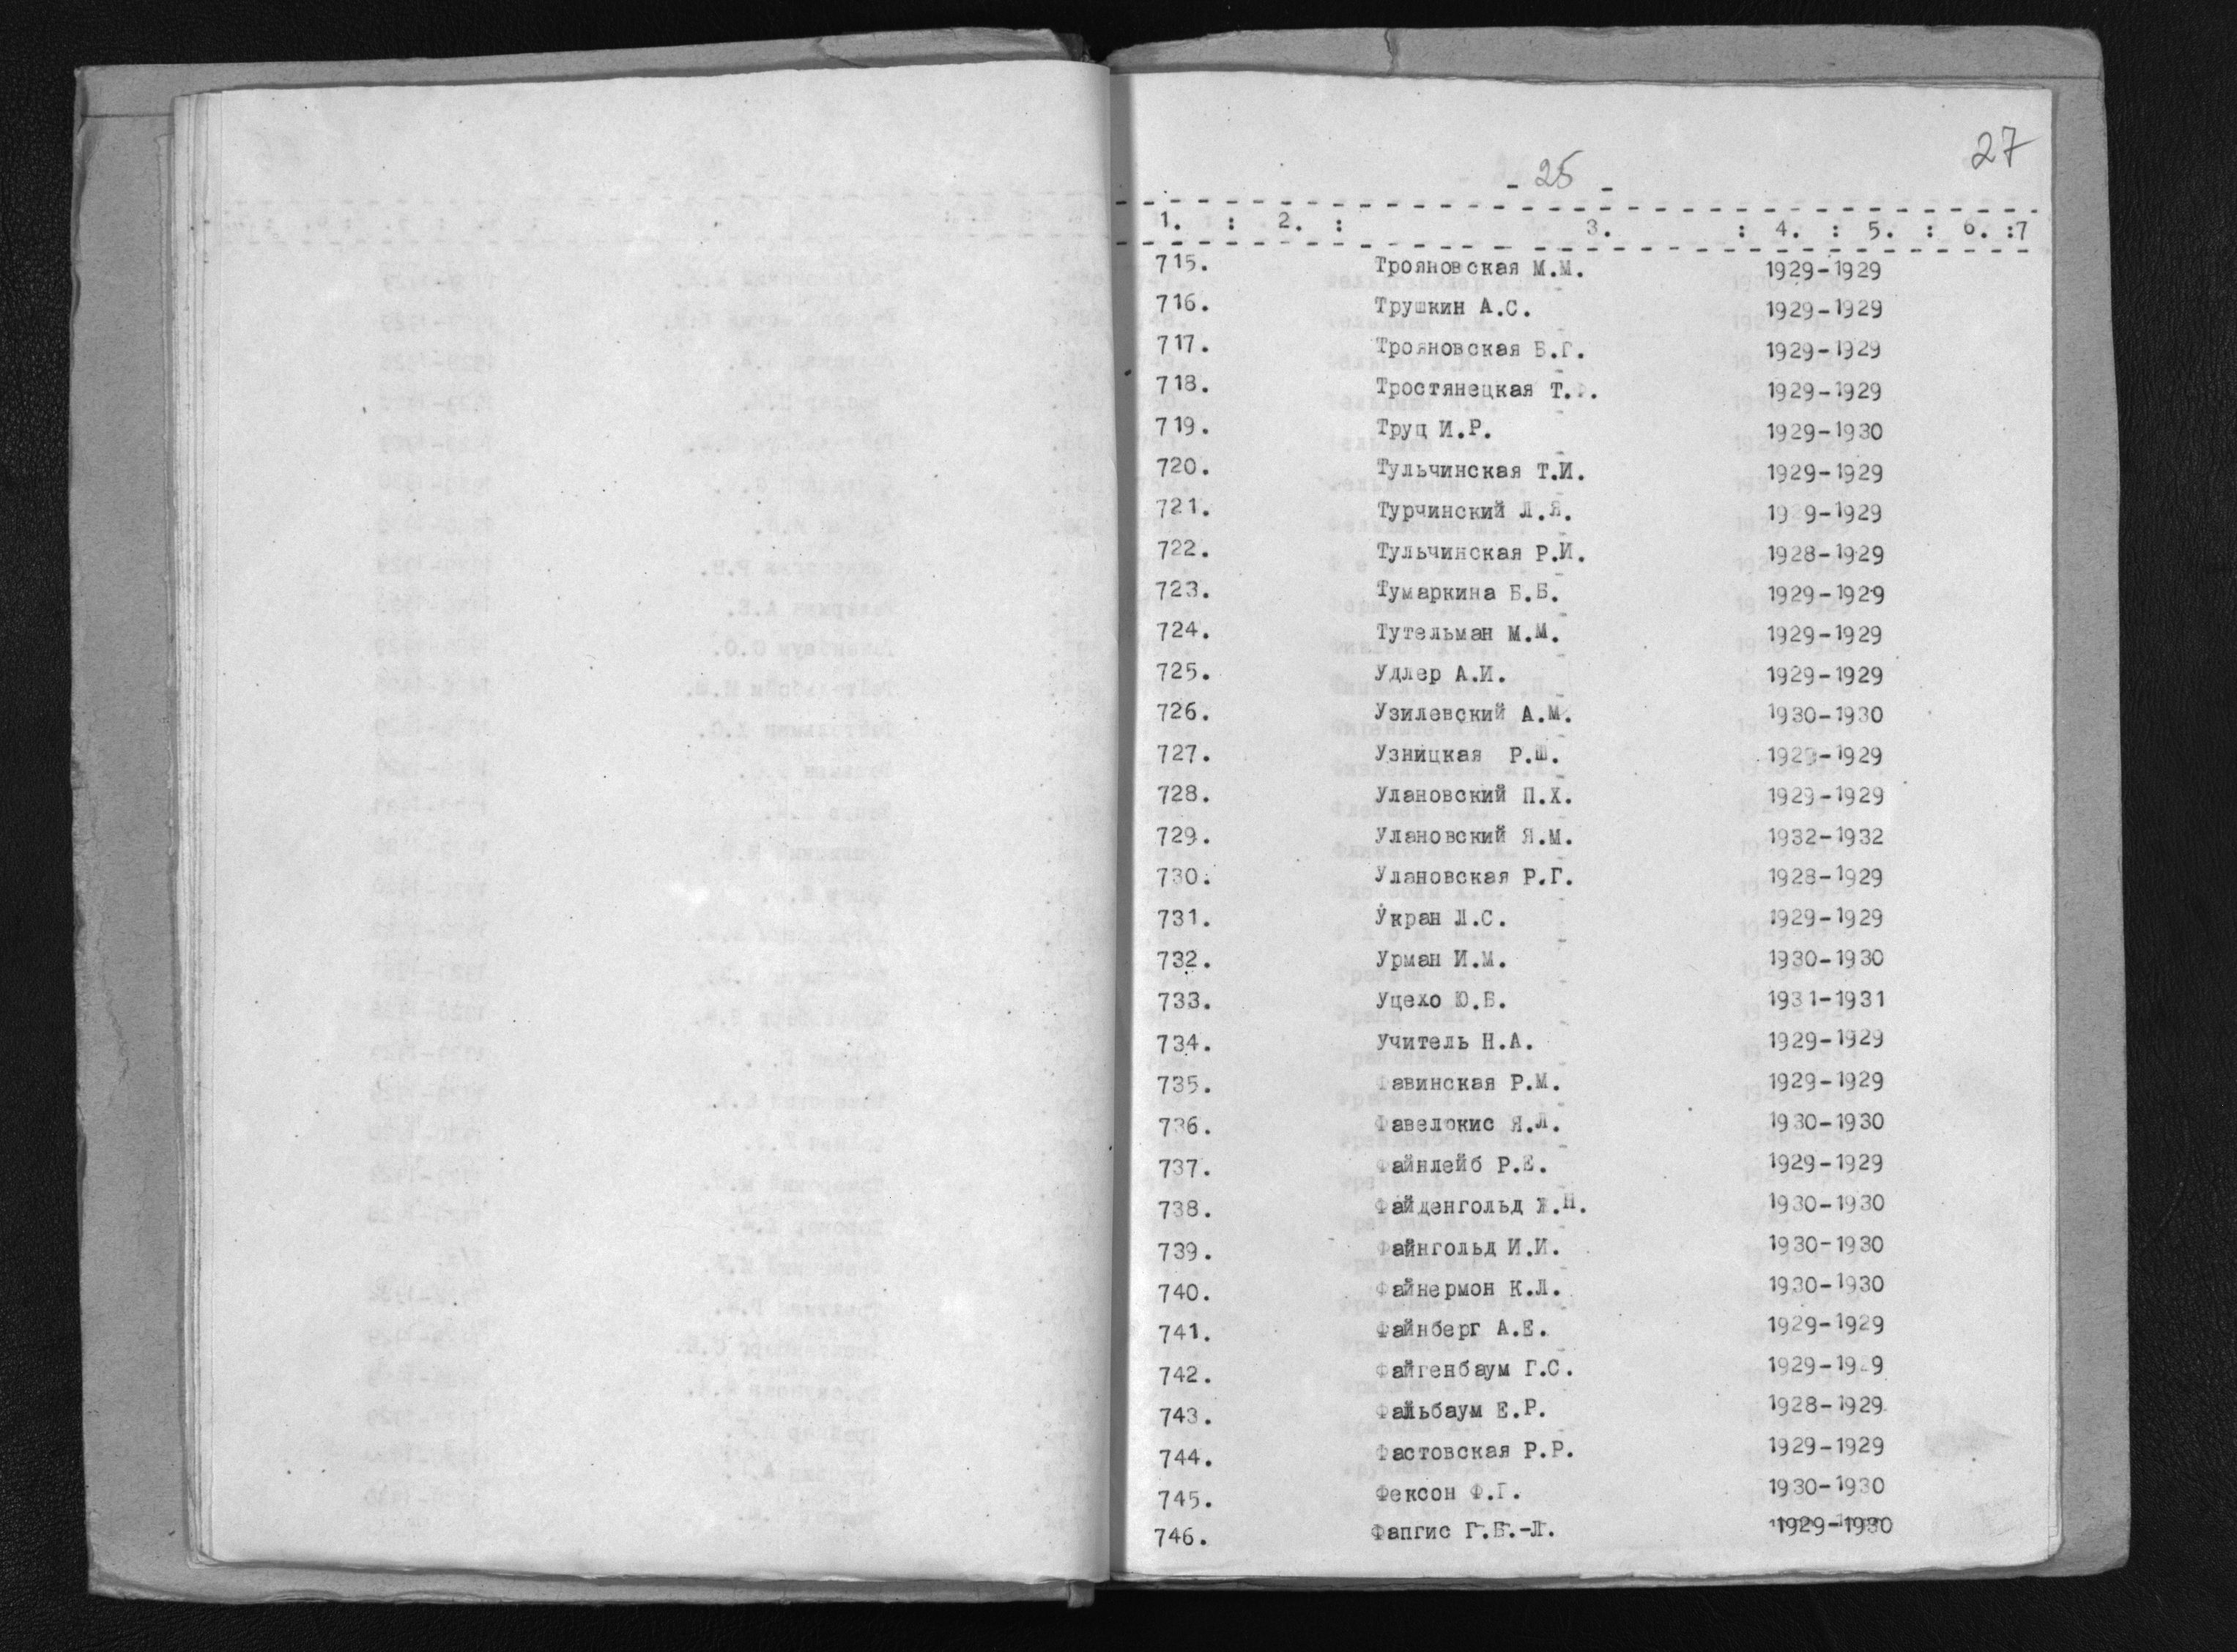 27
- 25 -
1. : 2. : 3. : 4. : 5. : 6. :7
715. Трояновская М.М. 1929-1929
716. Трушкин А.С. 1929-1929
717. Трояновская Б.Г. 1929-1929
718. Тростянецкая Т. 1929-1929
719. Труц И.Р. 1929-1930
720. Тульчинская Т.И. 1929-1929
721. Турчинский Л.Я. 19 9-1929
722. Тульчинская Р.И. 1928-1929
723. Тумаркина Б.Б. 1929-1929
724. Тутельман М.М. 1929-1929
725. Удлер А.И. 1929-1929
726. Узилевский А.М. 1930-1930
727. Узницкая Р.Ш. 1929-1929
728. Улановский П.Х. 1929-1929
729. Улановский Я.М. 1932-1932
730. Улановская Р.Г. 1928-1929
731. Укран Л.С. 1929-1929
732. Урман И.М. 1930-1930
733. Уцехо Ю.Б. 1931-1931
734. Учитель Н.А. 1929-1929
735. Фавинская Р.М. 1929-1929
736. Фавелокис Я.Л. 1930-1930
737. Файнлейб Р.Е. 1929-1929
738. Файденгольд Ж.Н. 1930-1930
739. Файнгольд И.И. 1930-1930
740. Файнермон К.Л. 1930-1930
741. Файнберг А.Е. 1929-1929
742. Файгенбаум Г.С. 1929-1929
743. Фальбаум Е.Р. 1928-1929
744. Фастовская Р.Р. 1929-1929
745. Фексон Ф.Г. 1930-1930
746. Фапгис Г.Б.-Л. 1929-1930